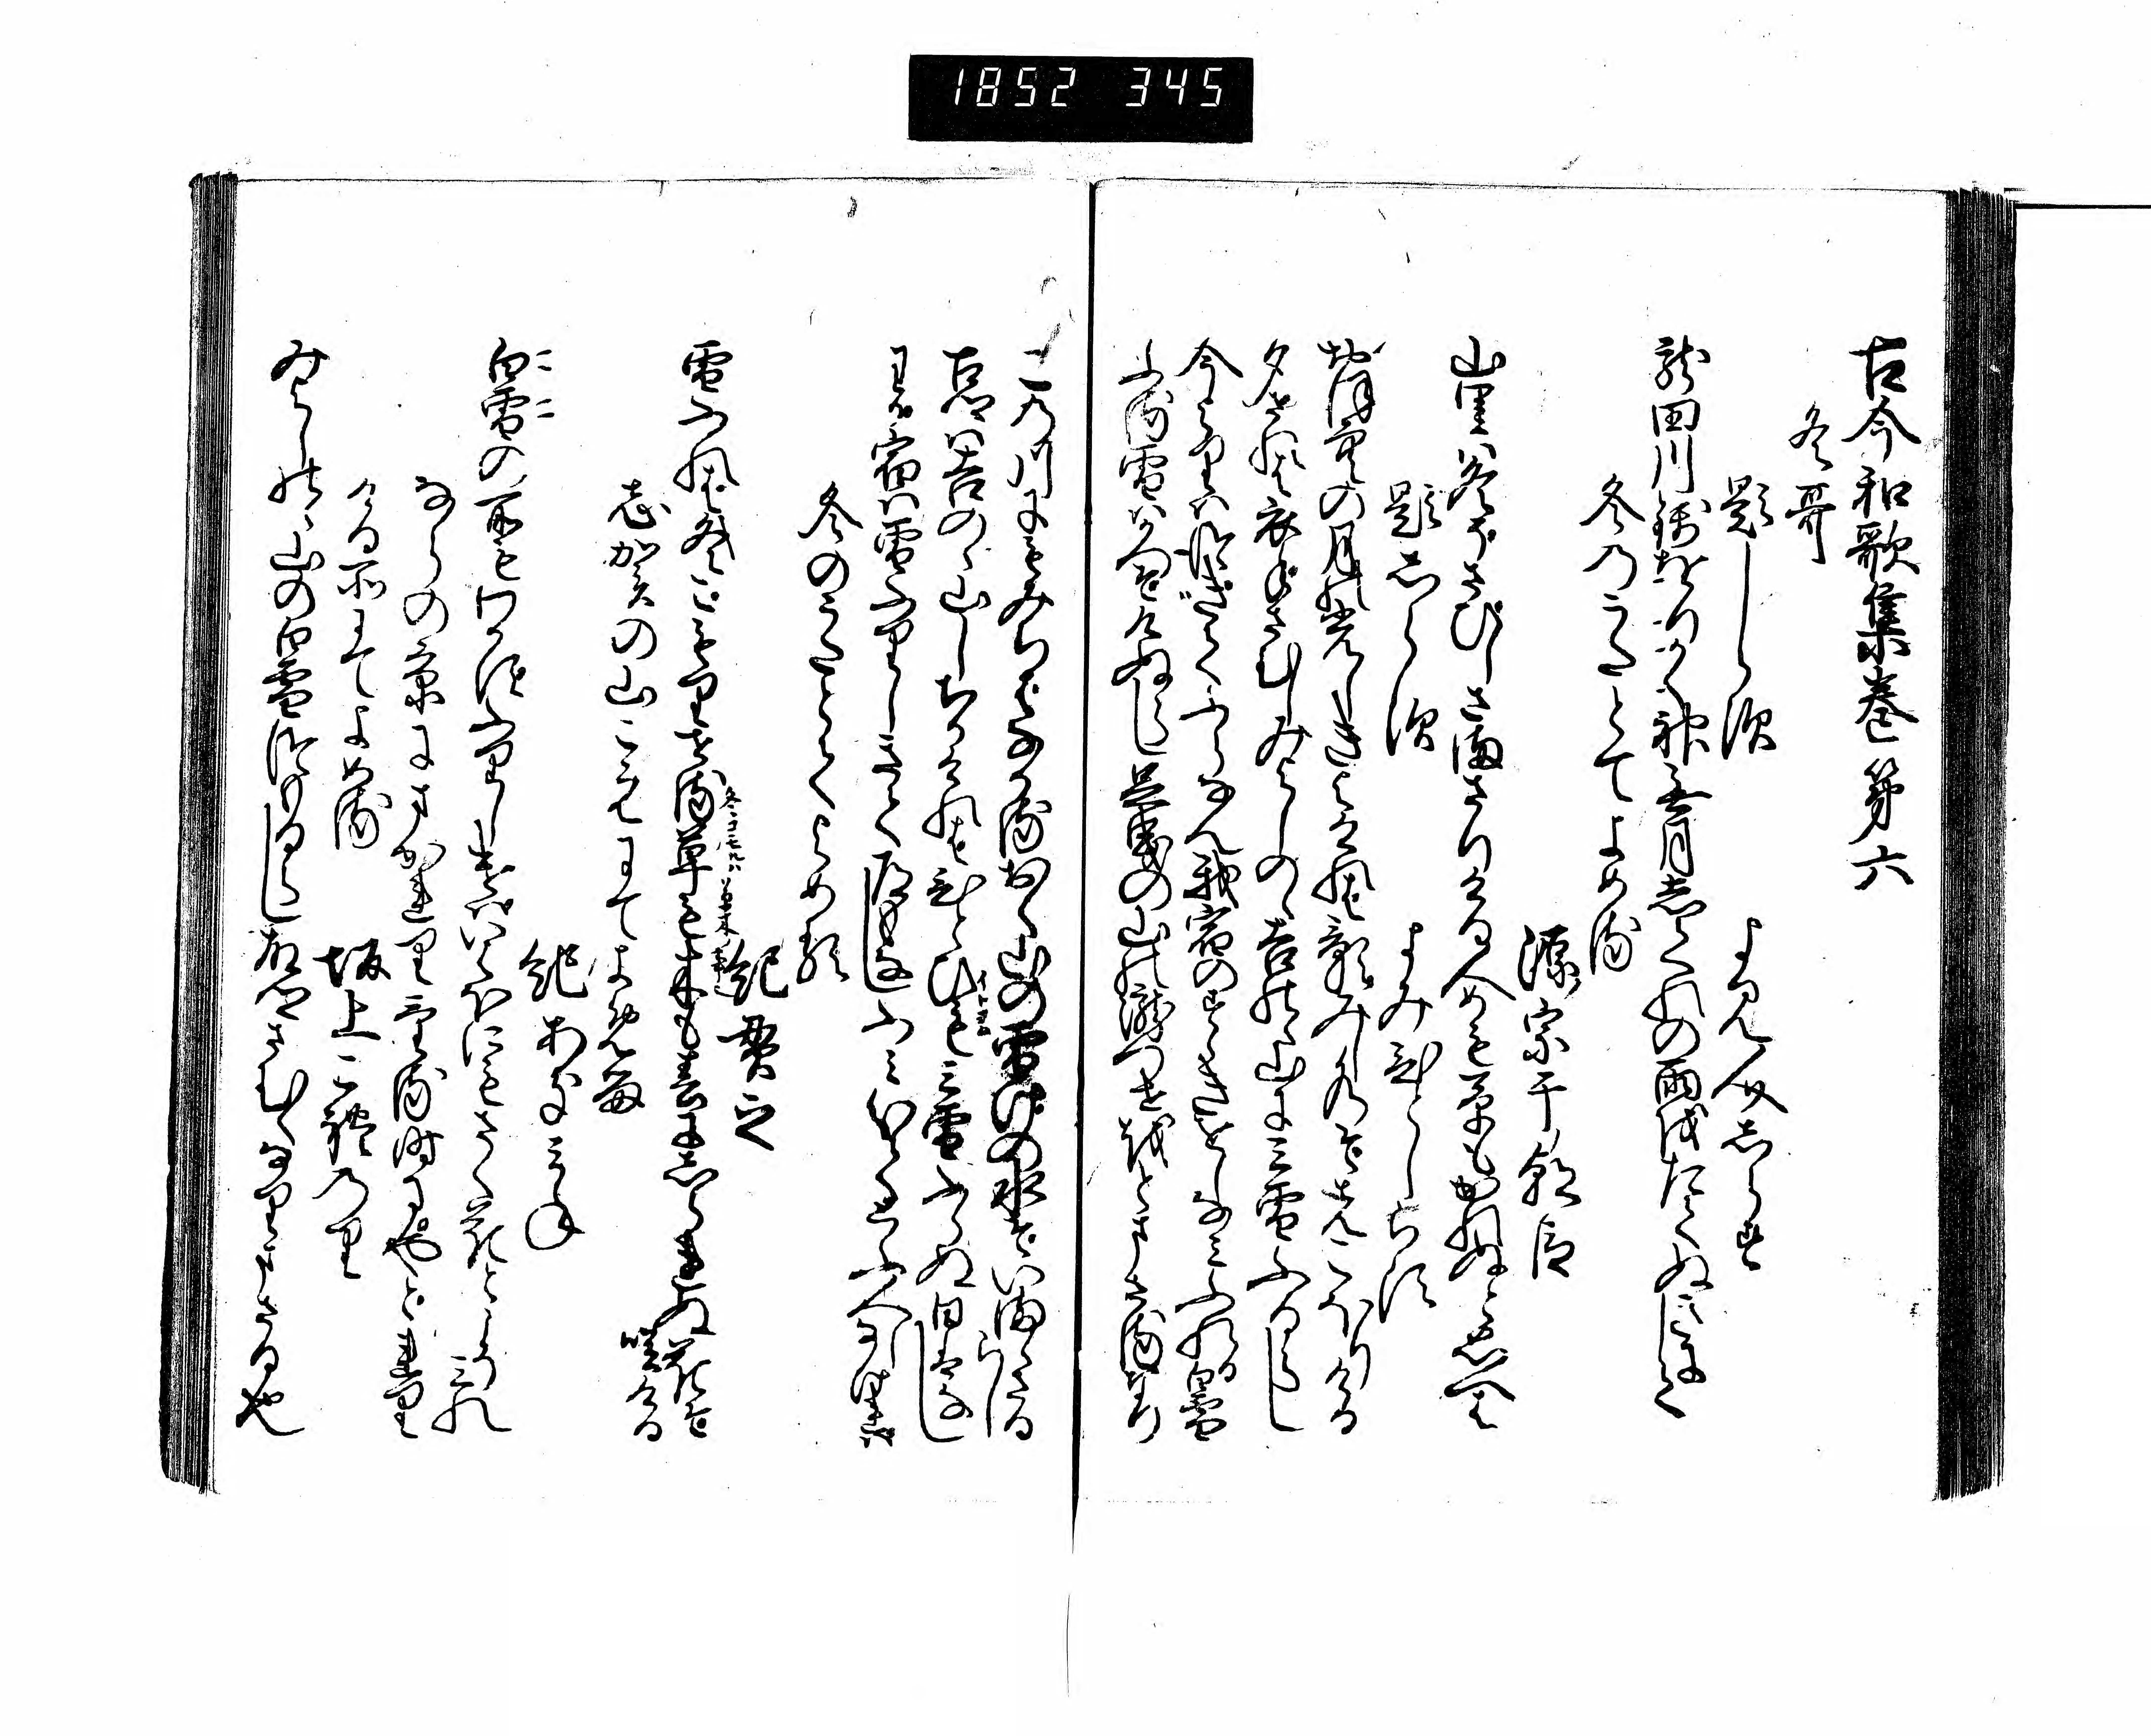 1852 345
古今和歌集巻第六
冬哥
題しらす
よみ人しらす
龍田川錦をりかく神無月しくれの雨をたてぬきにして
冬のうたとてよめる
源宗于朝臣
山里は冬そさひしさまさりける人めも草もかれぬとおもへは
題しらす
よみ人しらす
おほ空の月の光しきよけれは影みし水そ先こほりける
夕されは衣手さむしみよしのゝ吉野の山にみ雪ふるらし
今よりはつきてふらなん我宿のすゝきをしなみふれる白雪
ふる雪はかつそけぬらし足曳の山の瀧つせ音まさるなり
この川にもみちはなかるおく山の雪けの水そいまゝさるらし
古郷は吉野の山しちかけれはひとひもみ雪ふらぬ日はなし
わか宿は雪ふりしきて道もなしふみわけてとふ人しなけれは
冬のうたとてよめる
紀貫之
雪ふれは冬こもりせる草も木も春にしられぬ花そ咲ける
志賀の山こえにてよめる
紀あきみね
白雪の所もわかすふりしけはいはほにもさく花とこそみれ
ならの京にまかれりける時にやとれり
ける所にてよめる
坂上これのり
みよしのゝ山の白雪つもるらし故郷さむくなりまさる也